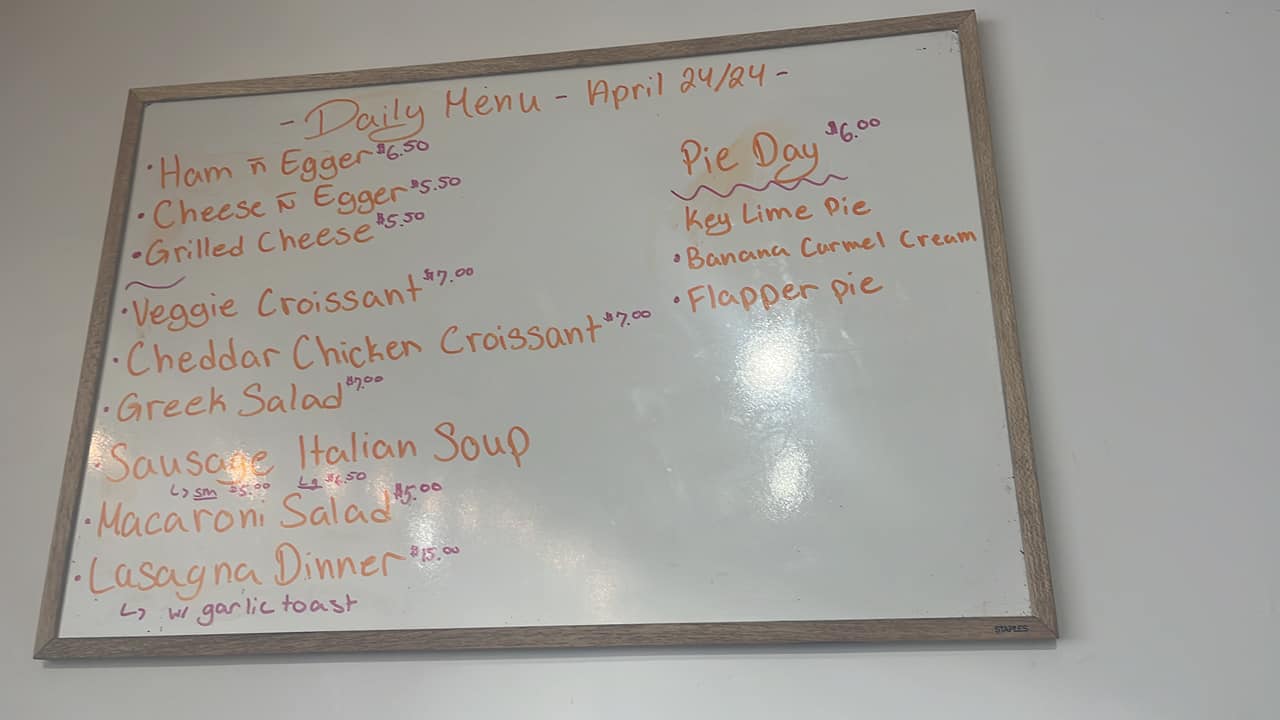 - Daily Menu - April 24/24 -
• Ham n̄ Egger $6.50
• Cheese N̄ Egger $5.50
• Grilled Cheese $5.50
• Veggie Croissant $7.00
• Cheddar Chicken Croissant $7.00
• Greek Salad $7.00
• Sausage Italian Soup
↳ sm $5.00 Lg $6.50
• Macaroni Salad $5.00
• Lasagna Dinner $15.00
↳ w/ garlic toast
Pie Day $6.00
Key Lime Pie
• Banana Carmel Cream
• Flapper pie
STAPLES